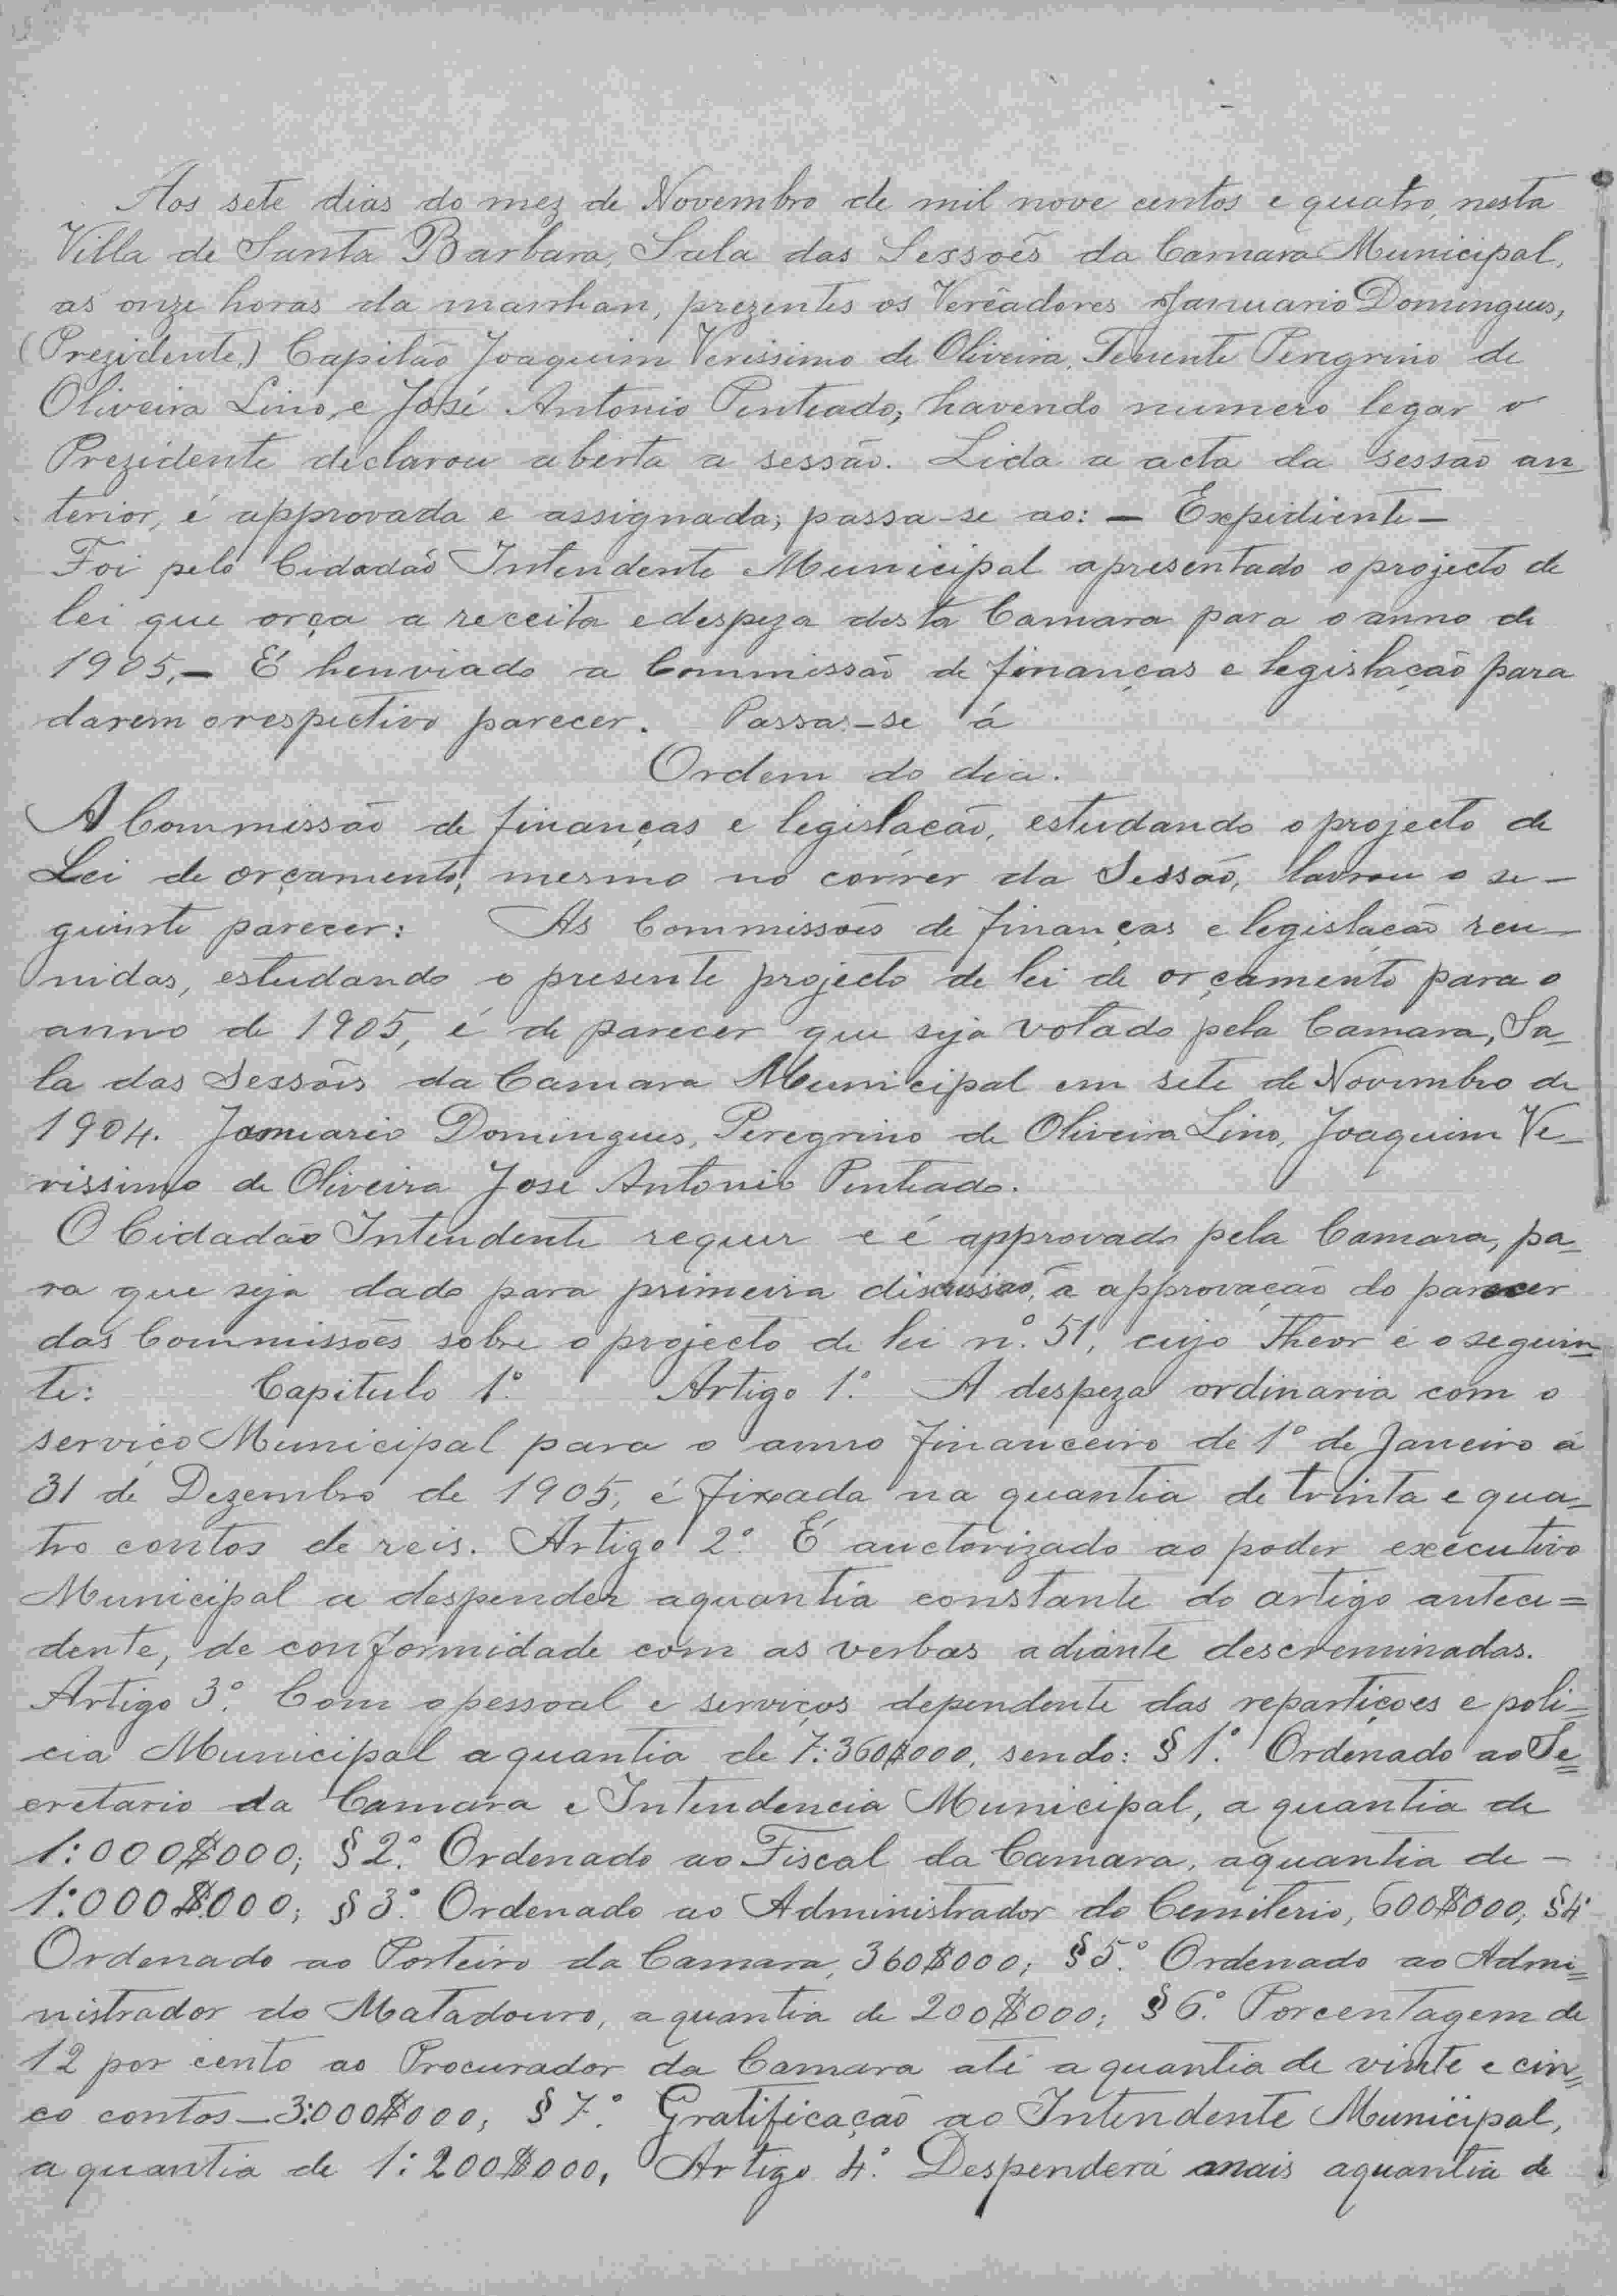 Aos sete dias do mez de Novembro de mil nove centos e quatro, nesta
Villa de Santa Barbara, Sala das Sessoẽs da Camara Municipal,
as onze horas da manhan, prezentes os Verêadores Januario Domingues,
(Prezidente,) Capitão Joaquim Verissimo de Oliveira, Tenente Peregrino de
Oliveira Lino, e José Antonio Penteado; havendo numero legar o
Prezidente declarou aberta a sessão. Lida a acta da sessão an
terior, é approvada e assignada; passa-se ao: — Expediente —
Foi pelo Cidadão Intendente Municipal apresentado o projecto de
lei que orça a receita e despeza desta Camara para o anno de
1905, — É henviado a Commissão de finanças e legislação para
darem o respectivo parecer. Passa-se á
Ordem do dia.
A Commissão de finanças e legislacão, estudando o projecto de
Lei de orçamento, mesmo no correr da Sessão, lavrou o se-
guinte parecer: As Commissoẽs de finanças e legislacão reu-
nidas, estudando o presente projecto de lei de orçamento para o
anno de 1905, é de parecer que seja votado pela Camara, Sa-
la das Sessoẽs da Camara Municipal em sete de Novembro de
1904. Januario Domingues, Peregrino de Oliveira Lino, Joaquim Ve-
rissimo de Oliveira José Antonio Penteado.
O Cidadão Intendente requer e é approvado pela Camara, pa-
ra que seja dado para primeira discussão, a approvação do parecer
das Commissoẽs sobre o projecto de lei nº. 51, cujo Theor é o seguin=
te: Capitulo 1º. Artigo 1.º A despeza ordinaria com o
serviço Municipal para o anno financeiro de 1º de Janeiro á
31 de Dezembro de 1905, é fixada na quantia de trinta e qua-
tro contos de reis. Artigo 2.º É auctorizado ao poder executivo
Municipal a despender a quantia constante do artigo antece=
dente, de conformidade com as verbas adiante descreminadas.
Artigo 3º. Com o pessoal e serviços dependente das repartiçoes e poli-
cia Municipal a quantia de 7:360$000, sendo: § 1.º Ordenado ao Se=
cretario da Camara e Intendencia Municipal, a quantia de
1:000$000; § 2.º Ordenado ao Fiscal da Camara, a quantia de -
1:000$000; § 3.º Ordenado ao Administrador do Cemiterio, 600$000; § 4º
Ordenado ao Porteiro da Camara, 360$000; § 5.º Ordenado ao Admi=
nistrador do Matadouro, a quantia de 200$000; § 6.º Porcentagem de
12 por cento ao Procurador da Camara até a quantia de vinte e cin=
co contos — 3:000$000; § 7.º Gratificação ao Intendente Municipal,
a quantia de 1:200$000, Artigo 4.º Despenderá mais a quantia de